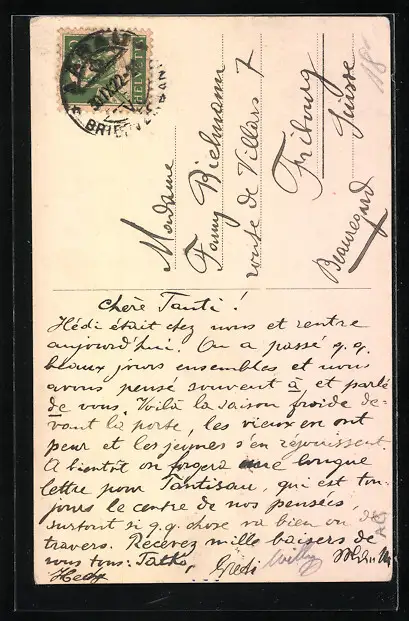 HELVETIA
BRIEF
Madame
Fanny Biehmann
route de Villars 7
Fribourg
Suisse
Beauregard
18
chère Tanti!
Hédi était chez nous et rentre
aujourd'hui. On a passé q.q.
beaux jours ensembles et nous
avons pensé souvent à, et parlé
de vous. Voilà la saison froide de-
vant la porte, les vieux en ont
peur et les jeunes s'en réjouissent.
A bientôt on forgera une longue
lettre pour Tantisau, qui est tou-
jours le centre de nos pensées,
surtout si q.q. chose va bien ou de
travers. Recevez mille baisers de
nous tous: Gredi Willy
Hedi